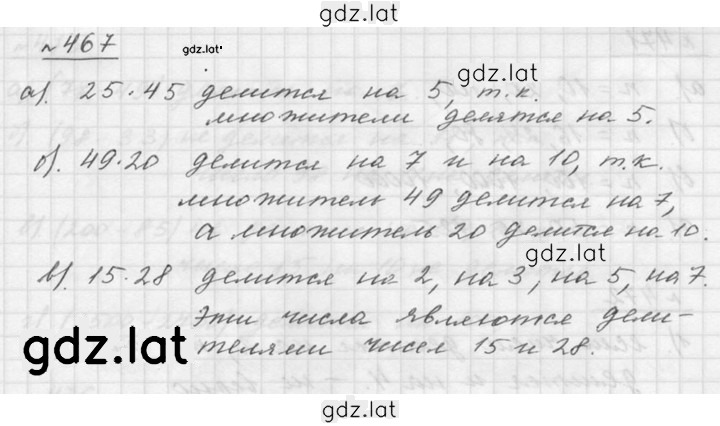 gdz.lat
№467
gdz.lat
gdz.lat
а). 25·45 делится на 5, т.к.
множители делятся на 5.
б). 49·20 делится на 7 и на 10, т.к.
множитель 49 делится на 7,
а множитель 20 делится на 10.
gdz.lat
в). 15·28 делится на 2, на 3, на 5, на 7.
Эти числа являются дели-
телями чисел 15 и 28.
gdz.lat
gdz.lat